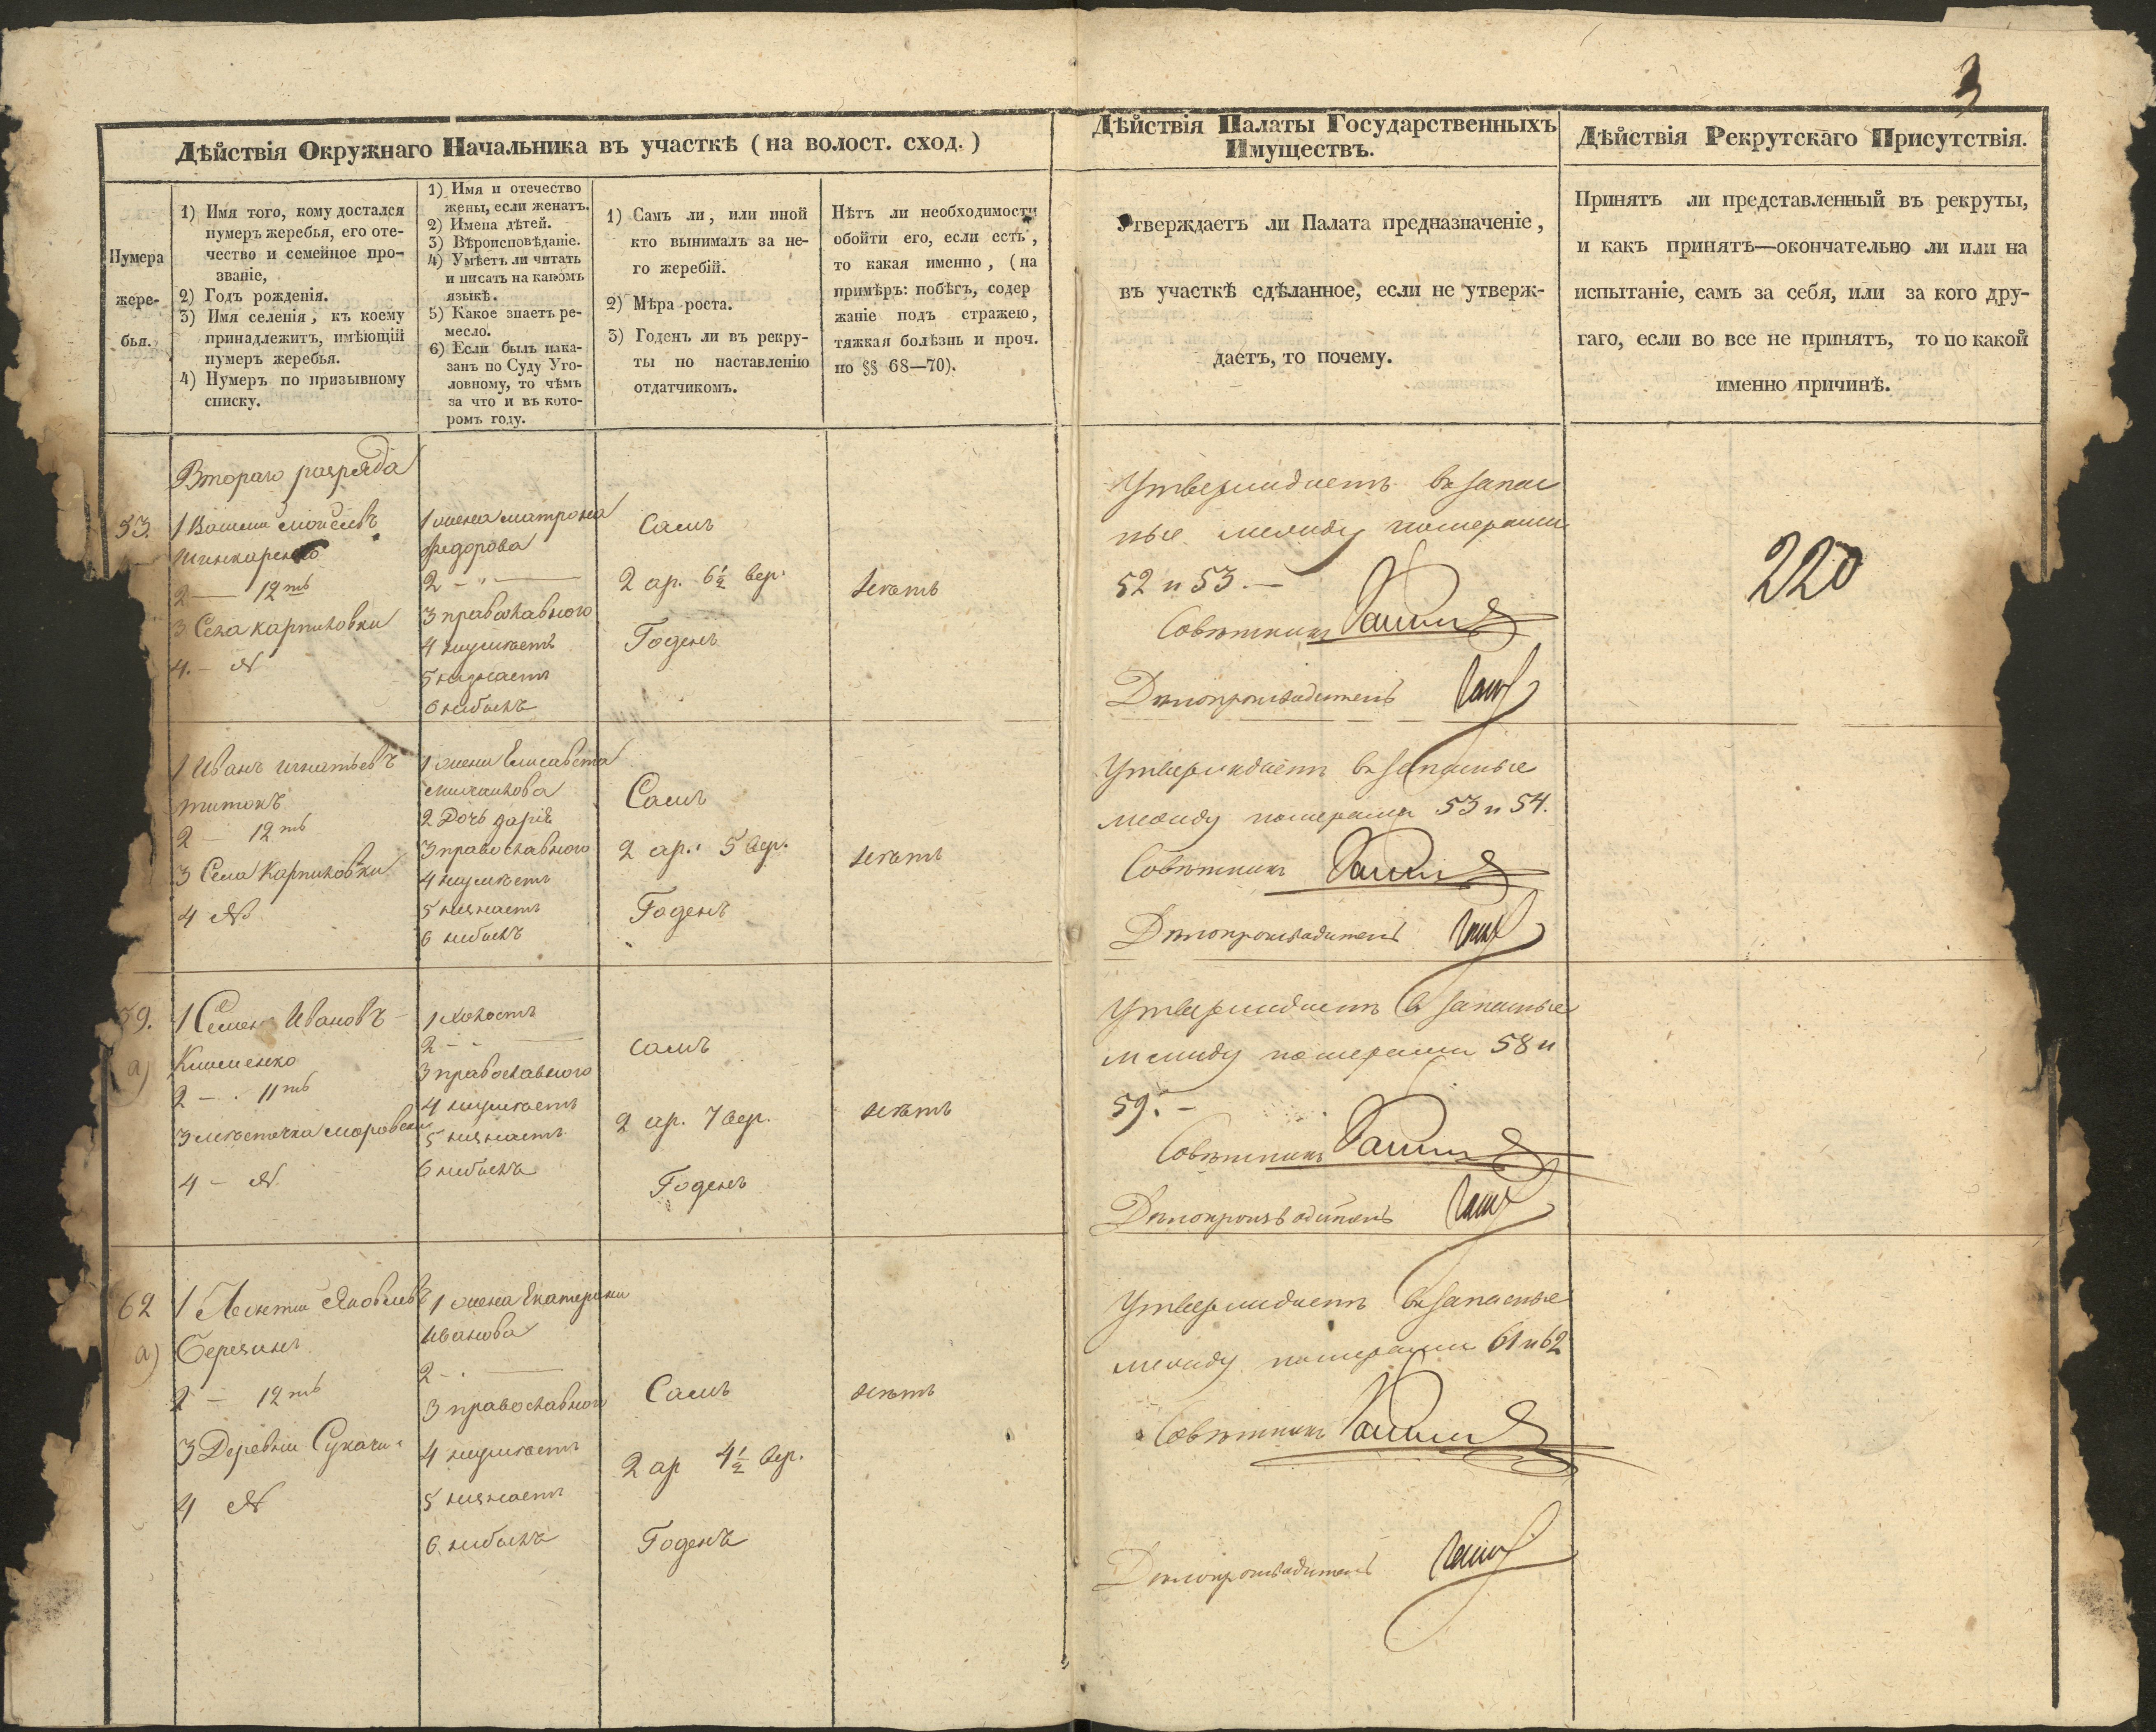 3
Дѣйствія Окружнаго Начальника въ участкѣ (на волост. сход.)
Дѣйствія Палаты Государственныхъ
Имуществъ.
Дѣйствія Рекрутскаго Присутствія.
Нумера
жере-
бья.
1) Имя того, кому достался
нумеръ жеребья, его оте-
чество и семейное про-
званіе,
2) Годъ рожденія.
3) Имя селенія, къ коему
принадлежитъ, имѣющій
нумеръ жеребья.
4) Нумеръ по призывному
списку.
1) Имя и отечество
жены, если женатъ.
2) Имена дѣтей.
3) Вѣроисповѣданіе.
4) Умѣетъ ли читать
и писать на какомъ
языкѣ.
5) Какое знаетъ ре-
месло.
6) Если былъ нака-
занъ по Суду Уго-
ловному, то чѣмъ
за что и въ кото-
ромъ году.
1) Самъ ли, или иной
кто вынималъ за не-
го жеребій.
2) Мѣра роста.
3) Годенъ ли въ рекру-
ты по наставленію
отдатчикомъ.
Нѣтъ ли необходимости
обойти его, если есть,
то какая именно, (на
примѣръ: побѣгъ, содер
жаніе подъ стражею,
тяжкая болѣзнь и проч.
по §§ 68—70).
Утверждаетъ ли Палата предназначеніе,
въ участкѣ сдѣланное, если не утверж-
даетъ, то почему.
Принятъ ли представленный въ рекруты,
и какъ принятъ—окончательно ли или на
испытаніе, самъ за себя, или за кого дру-
гаго, если во все не принятъ, то по какой
именно причинѣ.
Втораго разряда
53.
1 Василий Моисеевъ
Шинкаренко
2 — 12тъ
3 Села Карпиловки
4. — №
1 жена Матрона
Федорова
2 - " —
3 православного
4 неумѣетъ
5 незнаетъ
6 небылъ
Самъ
2 ар. 6 ½ вер.
Годенъ
Нѣтъ
Утверждаетъ въ запас
ные между номерами
52 и 53. —
Совѣтникъ
Дѣлопроизводитель
220
1 Иванъ Игнатьевъ
Титокъ
2 — 12тъ
3 Села Карпиловки
4 №
1 жена Елисавета
Михайлова
2 Дочь Дарія
3 православного
4 неумѣетъ
5 незнаетъ
6 небылъ
Самъ
2 ар. 5 вер.
Годенъ
Нѣтъ
Утверждаетъ въ запасные
между номерами 53 и 54.
Совѣтникъ
Дѣлопроизводитель
59.
а)
1 Семенъ Ивановъ
Клименко
2 — 11тъ
3 мѣстечка Моровска
4 — №
1 холостъ
2 - "
3 православного
4 неумѣетъ
5 незнаетъ
6 небылъ
самъ
2 ар. 7 вер.
Годенъ
Нѣтъ
Утверждаетъ въ запасные
между номерами 58 и
59. —
Совѣтникъ
Дѣлопроизводитель
62
а)
1 Леонтий Яковлевъ
2 — 12тъ
3 Деревни
4 №
1 жена Екатерина
Иванова
2 - . —
3 православного
4 неумѣетъ
5 незнаетъ
6 небылъ
Самъ
2 ар 4 ½ вер.
Годенъ
Нѣтъ
Утверждаетъ въ запасные
между номерами 61 и 62
Совѣтникъ
Дѣлопроизводитель